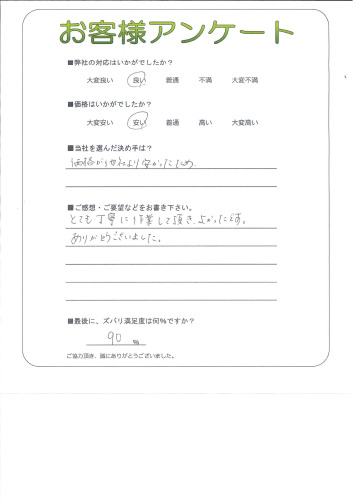 お客様アンケート
■弊社の対応はいかがでしたか？
大変良い 良い 普通 不満 大変不満
■価格はいかがでしたか？
大変安い 安い 普通 高い 大変高い
■当社を選んだ決め手は？
価格が他社より安かったため
■ご感想・ご要望などをお書き下さい。
とても丁寧に作業して頂き、よかったです。
ありがとうございました。
■最後に、ズバリ満足度は何%ですか？
90 %
ご協力頂き、誠にありがとうございました。